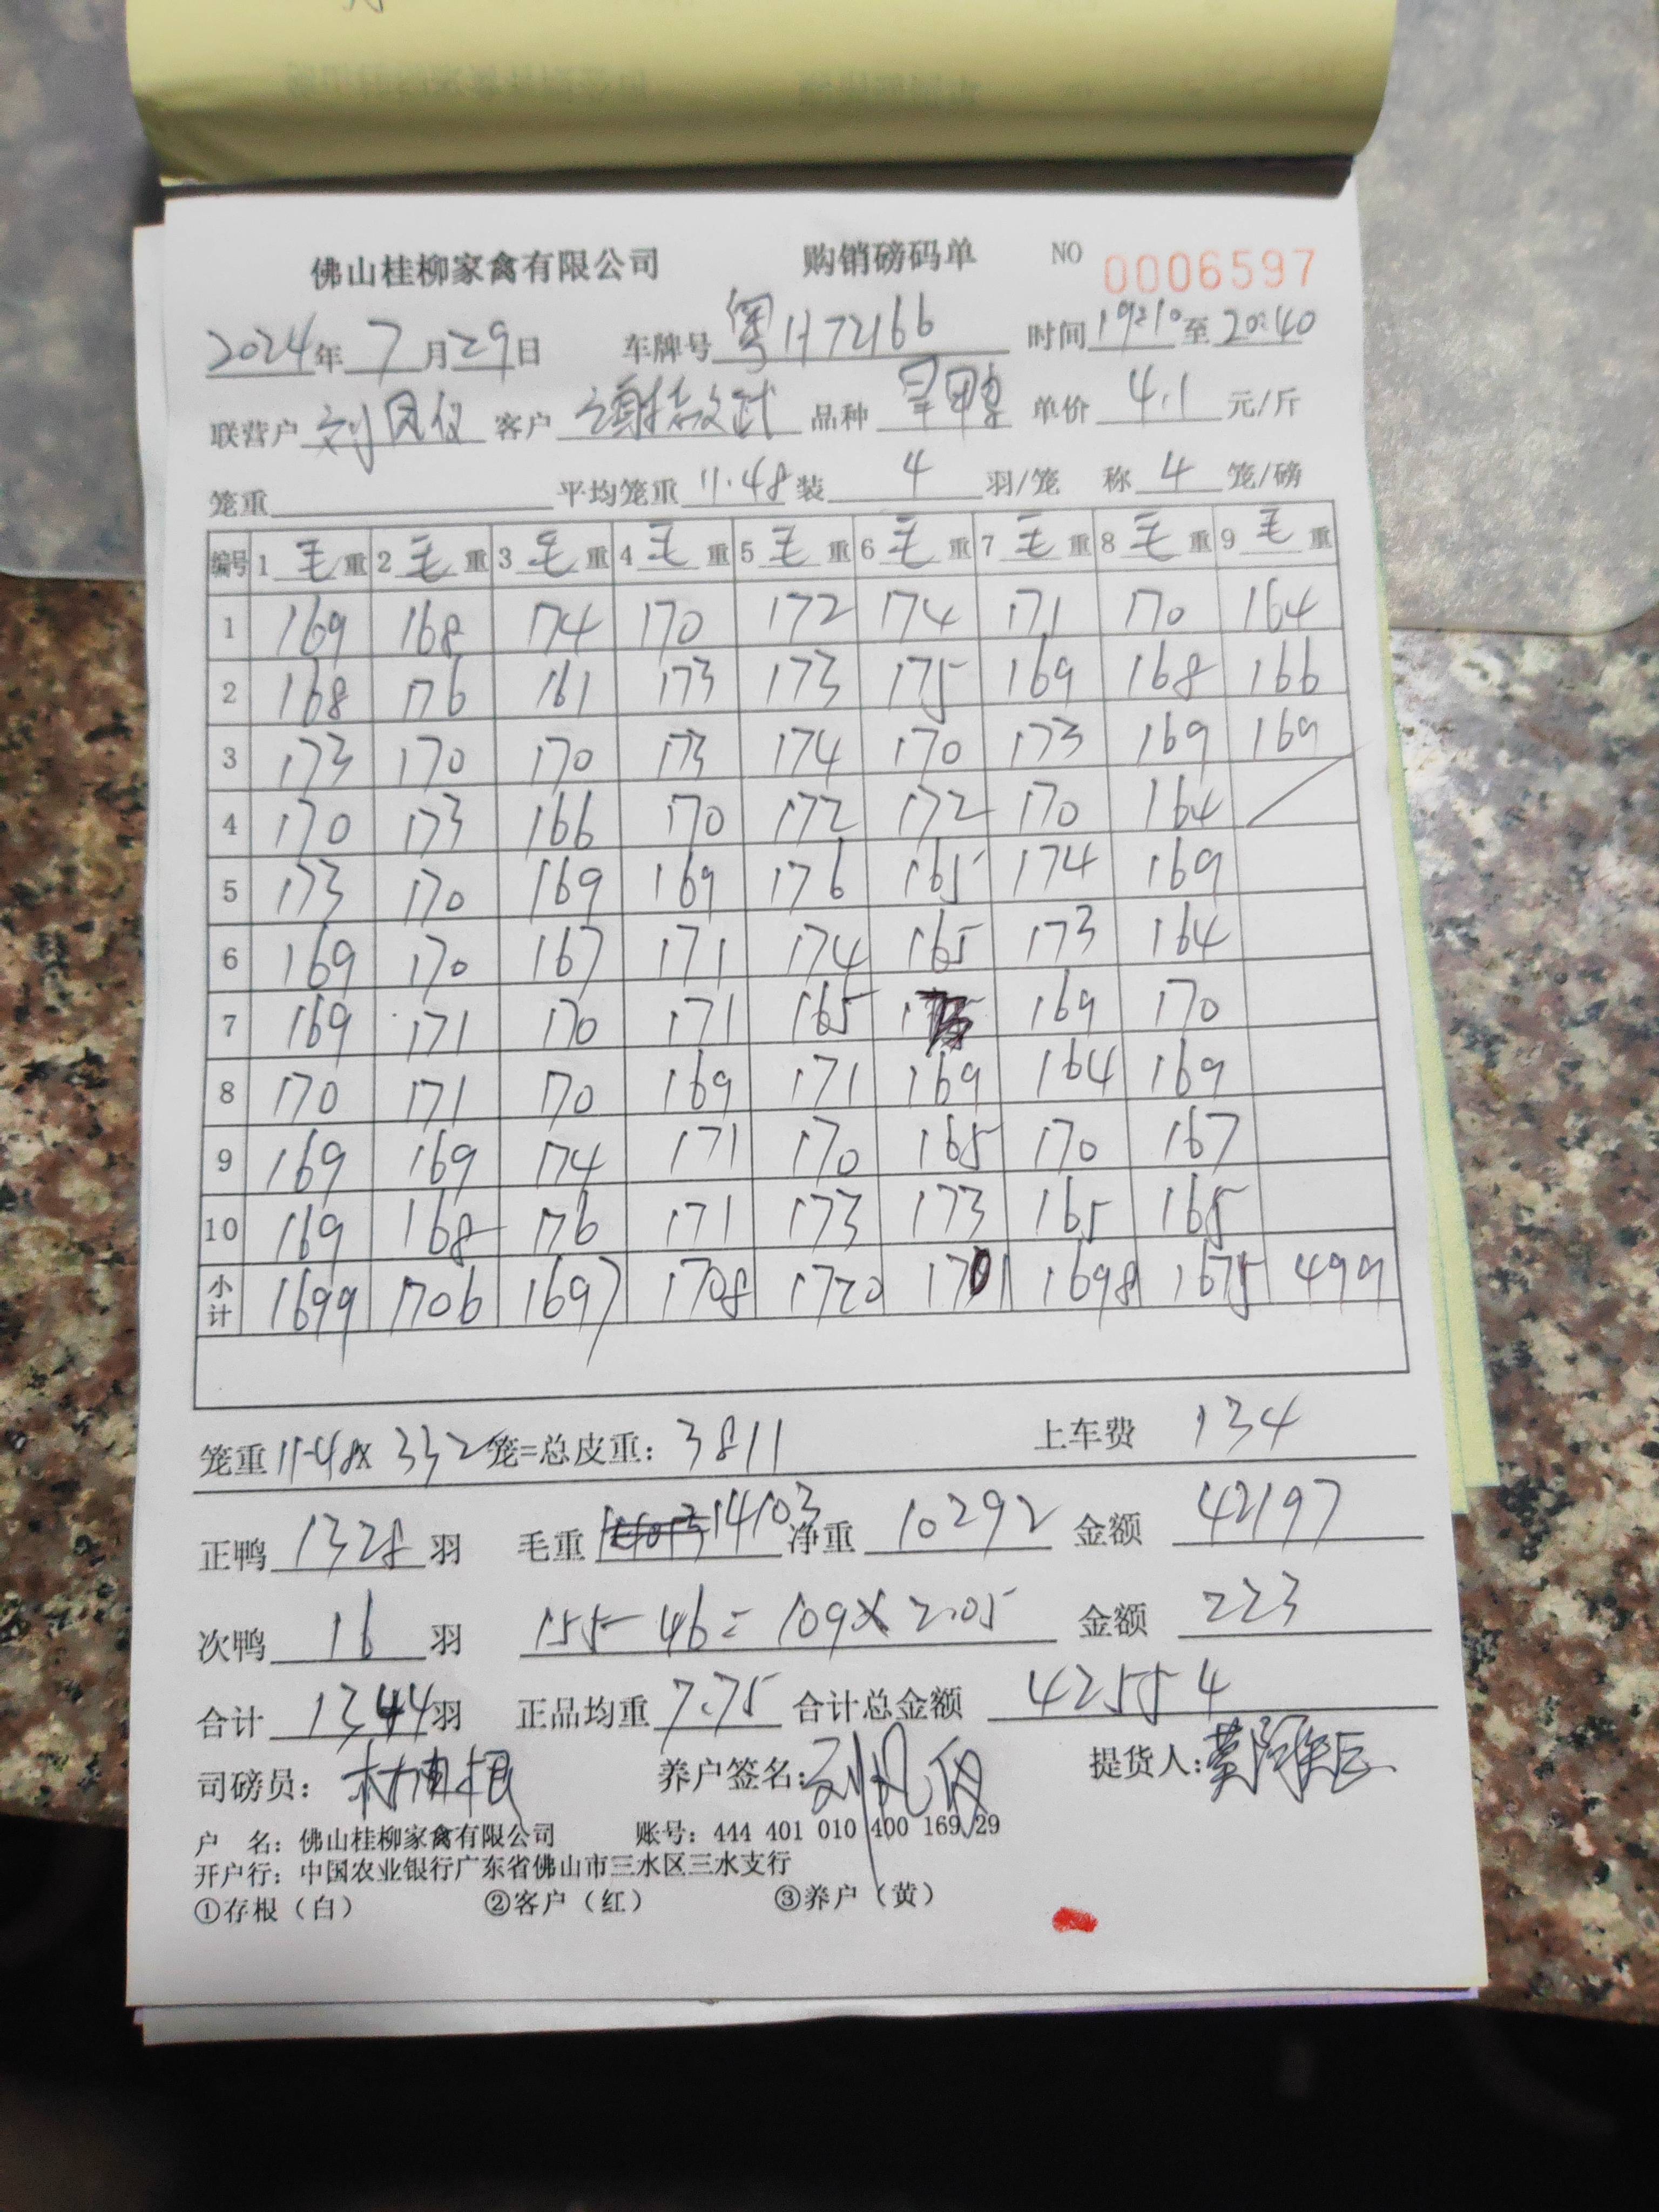 佛山桂柳家禽有限公司 购销磅码单 NO 0006597
2024年 7 月 29 日 车牌号 粤H72166 时间 19:10 至 20:40
联营户 刘凤仪 客户 品种 单价 4.1 元/斤
笼重 平均笼重 11.48 装 4 羽/笼 称 4 笼/磅
编号 1 毛 重 2 毛 重 3 毛 重 4 毛 重 5 毛 重 6 毛 重 7 毛 重 8 毛 重 9 毛 重
1 169 168 174 170 172 174 171 170 164
2 168 176 161 173 173 175 169 168 166
3 173 170 170 173 174 170 173 169 169
4 170 173 166 170 172 172 170 164
5 173 170 169 169 176 165 174 169
6 169 170 167 171 174 165 173 164
7 169 171 170 171 165 169 170
8 170 171 170 169 171 169 164 169
9 169 169 174 171 170 165 170 167
10 169 168 176 171 173 173 165 165
小计 1699 1706 1697 1708 1720 1701 1698 1675 499
笼重 11.48x 332 笼=总皮重: 3811 上车费 134
正鸭 1328 羽 毛重 14103 净重 10292 金额 42197
次鸭 16 羽 155-46=109x2.05 金额 223
合计 1344 羽 正品均重 7.75 合计总金额 42554
司磅员: 养户签名: 刘凤仪 提货人:
户 名: 佛山桂柳家禽有限公司 账号: 444 401 010 400 169 29
开户行: 中国农业银行广东省佛山市三水区三水支行
①存根(白) ②客户(红) ③养户(黄)